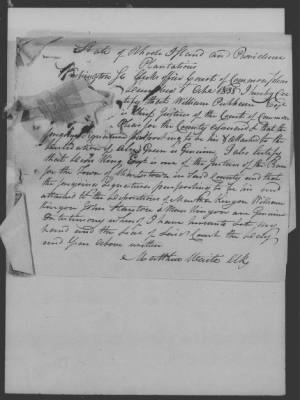 State of Rhode Island and Providence
Plantations
Washington Sc Clerks office Court of Common Pleas
I hereby Cer
tify that William Peckham Esqr
is Chief Justice of the Court of Common
Pleas for the County aforesaid & that the
foregoing signature purporting to be his & attached to the
of is Genuine I also certify
that Esqr is one of the Justices of the Peace
for the Town of in said County and that
the foregoing signatures purporting to be his and
attached to the Depositions of Martha Kenyon William
Kenyon John & Kenyon are Genuine
In testimony whereof I have hereunto set my
hand and the Seal of said Court the day
and year above written
Waite Clk